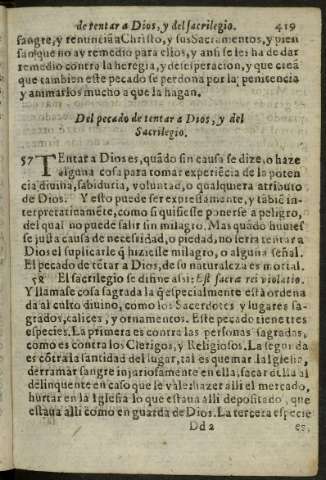 de tentar a Dios, y del sacrilegio. 419
sangre, y renunciãa Christo, y sus Sacramentos, y pien
san que no ay remedio para ellos, y ansi se les ha de dar
remedio contra la heregia, y desesperacion, y que creã
que tambien este pecado se perdona por la penitencia
y animarlos mucho a que la hagan.
Del pecado de tentar a Dios, y del
Sacrilegio.
57 TEntar a Dios es, quãdo sin causa se dize, o haze
alguna cosa para tomar experiẽcia de la poten
cia diuina, sabiduria, voluntad, o qualquiera atributo
de Dios. Y esto puede ser expressamente, y tãbiẽ in-
terpretatiuamẽte, como si quisiesse ponerse a peligro,
del qual no puede salir sin milagro. Mas quãdo huuies
se justa causa de necesidad, o piedad, no serra tentar a
Dios el suplicarle q̃ hiziesse milagro, o alguna señal.
El pecado de tẽtar a Dios, de su naturaleza es mortal.
58 El sacrilegio se difine assi: Est sacræ rei violatio.
Y llamase cosa sagrada la q̃ especialmente està ordena
da al culto diuino, como los Sacerdotes y lugares sa-
grados, calices, y ornamentos. Este pecado tiene tres
especies. La primera es contra las personas sagradas,
como es contra los Clerigos, y Religiosos. La segunda
es cõtra la santidad del lugar, tal es quemar la Iglesia,
derramar sangre injuriosamente en ella, sacar della al
delinquente en caso que le vale: hazer alli el mercado,
hurtar en la Iglesia lo que estaua alli depositado, que
estaua alli como en guarda de Dios. La tercera especie
Dd 2 es,